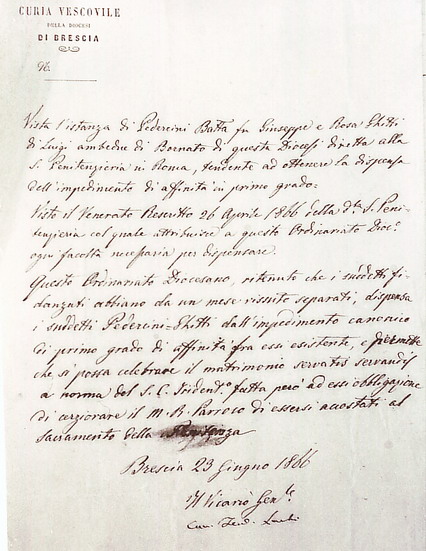 CURIA VESCOVILE
DELLA DIOCESI
DI BRESCIA
N.
Vista l'istanza di Pedercini Batta fu Giuseppe e Rosa Ghitti
di Luigi ambedue di Bornato di questa Diocesi diretta alla
S. Penitenzieria in Roma, tendente ad ottenere la dispensa
dell'impedimento di affinità in primo grado:
Visto il Venerato Rescritto 26 Aprile 1866 della dta S. Peni-
tenzieria col quale attribuisce a questo Ordinariato Dioco
ogni facoltà necessaria per dispensare.
Questo Ordinariato Diocesano, ritenuto che i suddetti fi-
danzati abbiano da un mese vissuto separati, dispensa
i suddetti Pedercini-Ghitti dall'impedimento canonico
di primo grado di affinità fra essi esistente, e permette
che si possa celebrare il matrimonio servatis servandis
a norma del S. C. Tridento fatta però ad essi obbligazione
di cerziorare il M. R. Parroco di essersi accostati al
Sacramento della Penitenza
Brescia 23 Giugno 1866
Il Vicario Genle